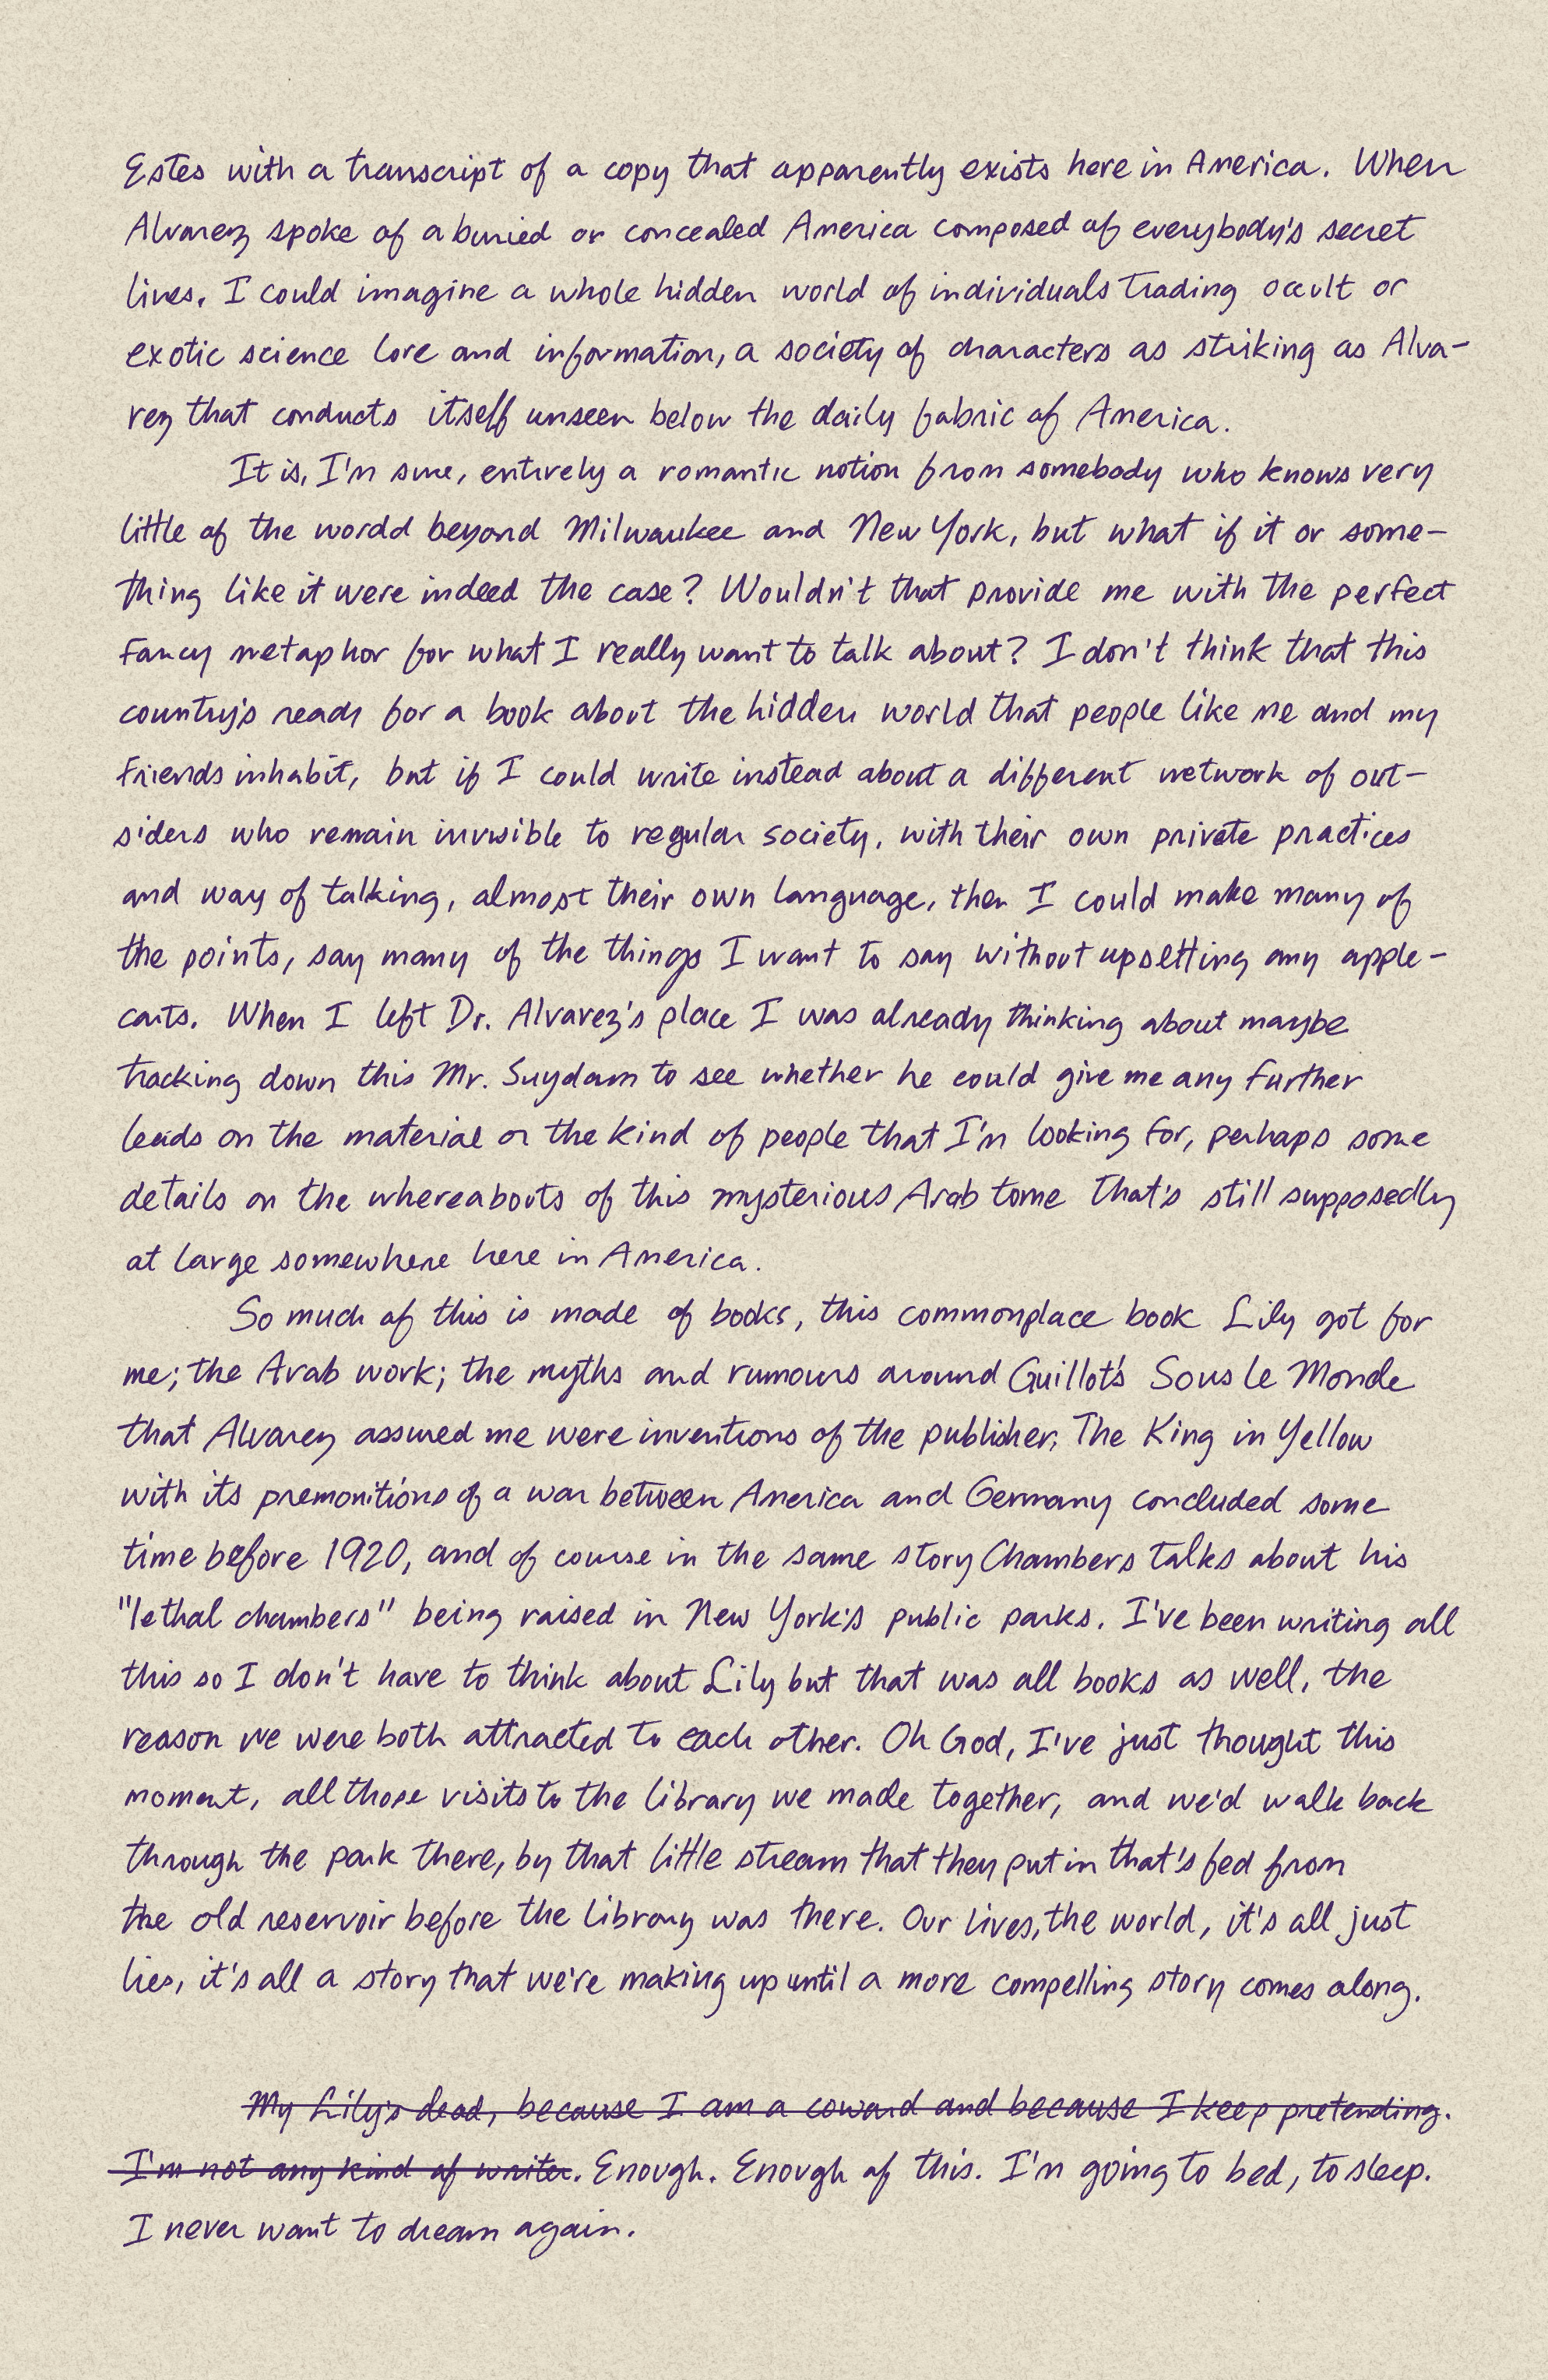 Estes with a transcript of a copy that apparently exists here in America. When
Alvarez spoke of a buried or concealed America composed of everybody's secret
lives. I could imagine a whole hidden world of individuals trading occult or
exotic science lore and information, a society of characters as striking as Alva-
rez that conducts itself unseen below the daily fabric of America.
It is, I'm sure, entirely a romantic notion from somebody who knows very
little of the wordd beyond Milwaukee and New York, but what if it or some-
thing like it were indeed the case? Wouldn't that provide me with the perfect
fancy metaphor for what I really want to talk about? I don't think that this
country's ready for a book about the hidden world that people like me and my
friends inhabit, but if I could write instead about a different network of out-
siders who remain invisible to regular society, with their own private practices
and way of talking, almost their own language, then I could make many of
the points, say many of the things I want to say without upsetting any apple-
carts. When I left Dr. Alvarez's place I was already thinking about maybe
tracking down this Mr. Suydam to see whether he could give me any further
leads on the material or the kind of people that I'm looking for, perhaps some
details on the whereabouts of this mysterious Arab tome that's still supposedly
at large somewhere here in America.
So much of this is made of books, this commonplace book Lily got for
me; the Arab work; the myths and rumours around Guillot's Sous le Monde
that Alvarez assured me were inventions of the publisher; The King in Yellow
with its premonitions of a war between America and Germany concluded some
time before 1920, and of course in the same story Chambers talks about his
"lethal chambers" being raised in New York's public parks. I've been writing all
this so I don't have to think about Lily but that was all books as well, the
reason we were both attracted to each other. Oh God, I've just thought this
moment, all those visits to the library we made together, and we'd walk back
through the park there, by that little stream that they put in that's fed from
the old reservoir before the library was there. Our lives, the world, it's all just
lies, it's all a story that we're making up until a more compelling story comes along.
My Lily's dead, because I am a coward and because I keep pretending.
I'm not any kind of writer. Enough. Enough of this. I'm going to bed, to sleep.
I never want to dream again.